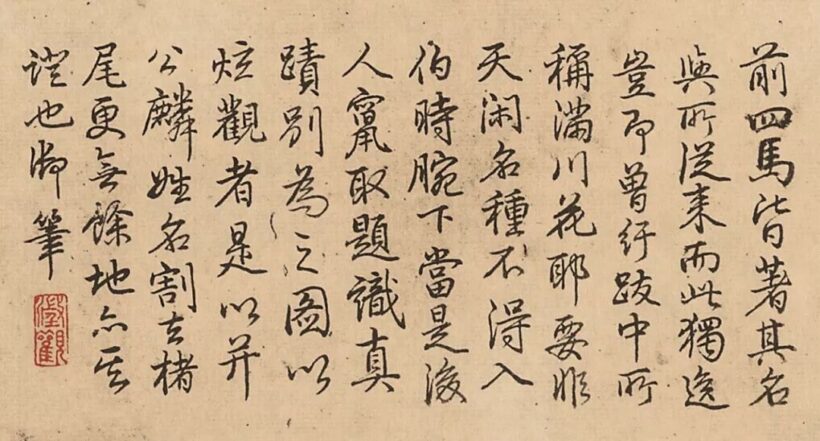 前四馬皆著其名
與所從來而此獨逸
豈即曾紆跋中所
稱滿川花耶要非
天閑名種不得入
伯時腕下當是後
人竄取題識真
蹟別為之圖以
炫觀者是以并
公麟姓名割去楮
尾更無餘地亦其
證也御筆
澂觀